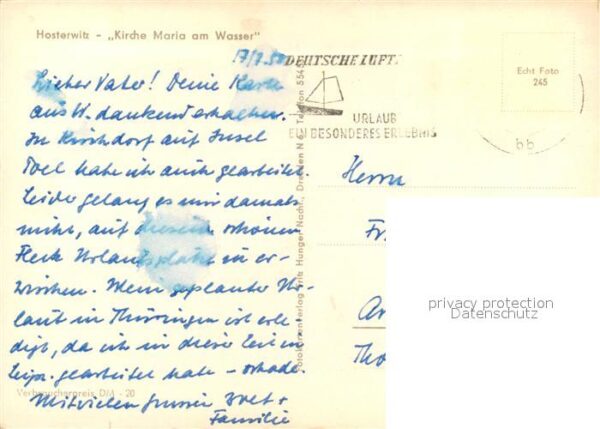 Hosterwitz - „Kirche Maria am Wasser"
Lieber Vater! Deine Karte
aus W. dankend erhalten.
In Kirchdorf auf Insel
Poel habe ich auch gearbeitet.
Leider gelang es mir damals
nicht, auf diesem schönen
Fleck Urlaubsplätze zu er-
wischen. Mein geplanter Ur-
laub in Thüringen ist erle-
digt, da ich in dieser Zeit in
Leipz. gearbeitet habe - schade.
Mit vielen Grüssen
Familie
Verbraucherpreis DM -.20
Fotokartenverlag Fritz Hunger Nachf., Dresden N 6, Telefon 554
DEUTSCHE LUFT
URLAUB
EIN BESONDERES ERLEBNIS
bb
Echt Foto
245
Herrn
privacy protection
Datenschutz